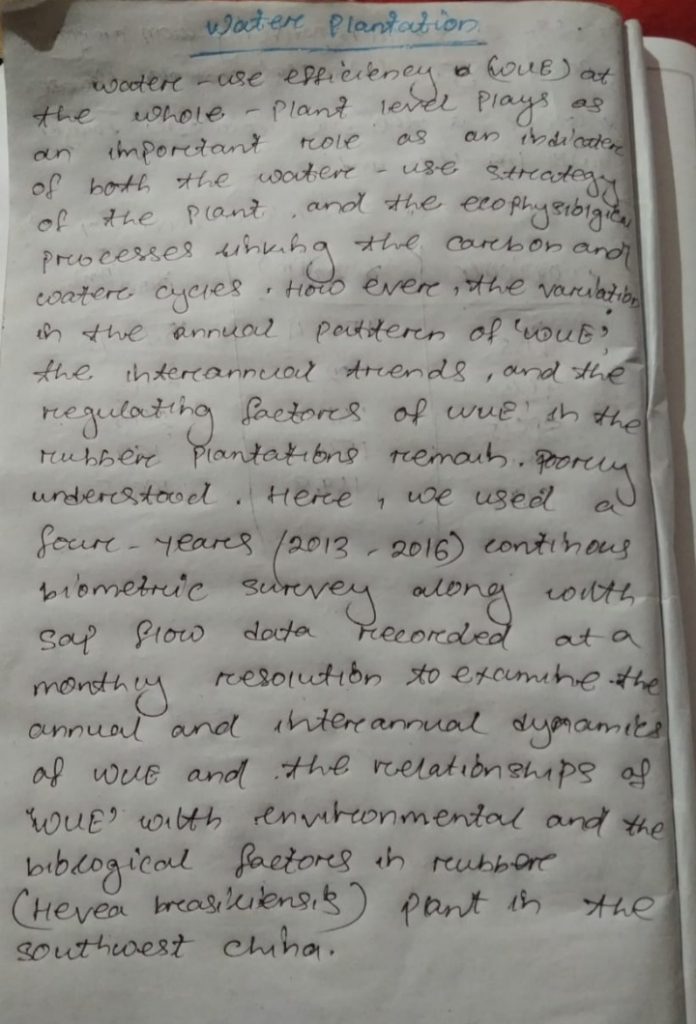 Watere Plantation
watere - use efficiency (WUE) at
the whole - plant level plays as
an imporetant role as an indicatere
of both the watere - use streategy
of the plant, and the ecophysiblgical
processes linking the carebon and
watere cycles. How evere, the variiation
in the annual patteren of 'WUE'
the intereannual treends, and the
regulating factores of WUE' in the
rubbere plantations remain. poorely
understood. Here, we used a
foure - yeares (2013 - 2016) continous
biometric survey along with
sap flow data recorded at a
monthly resolution to examine the
annual and intereannual dynamics
of WUE and the relationships of
'WUE' with environmental and the
biblogical factores in rubbere
(Hevea breasiliensis) plant in the
southwest china.